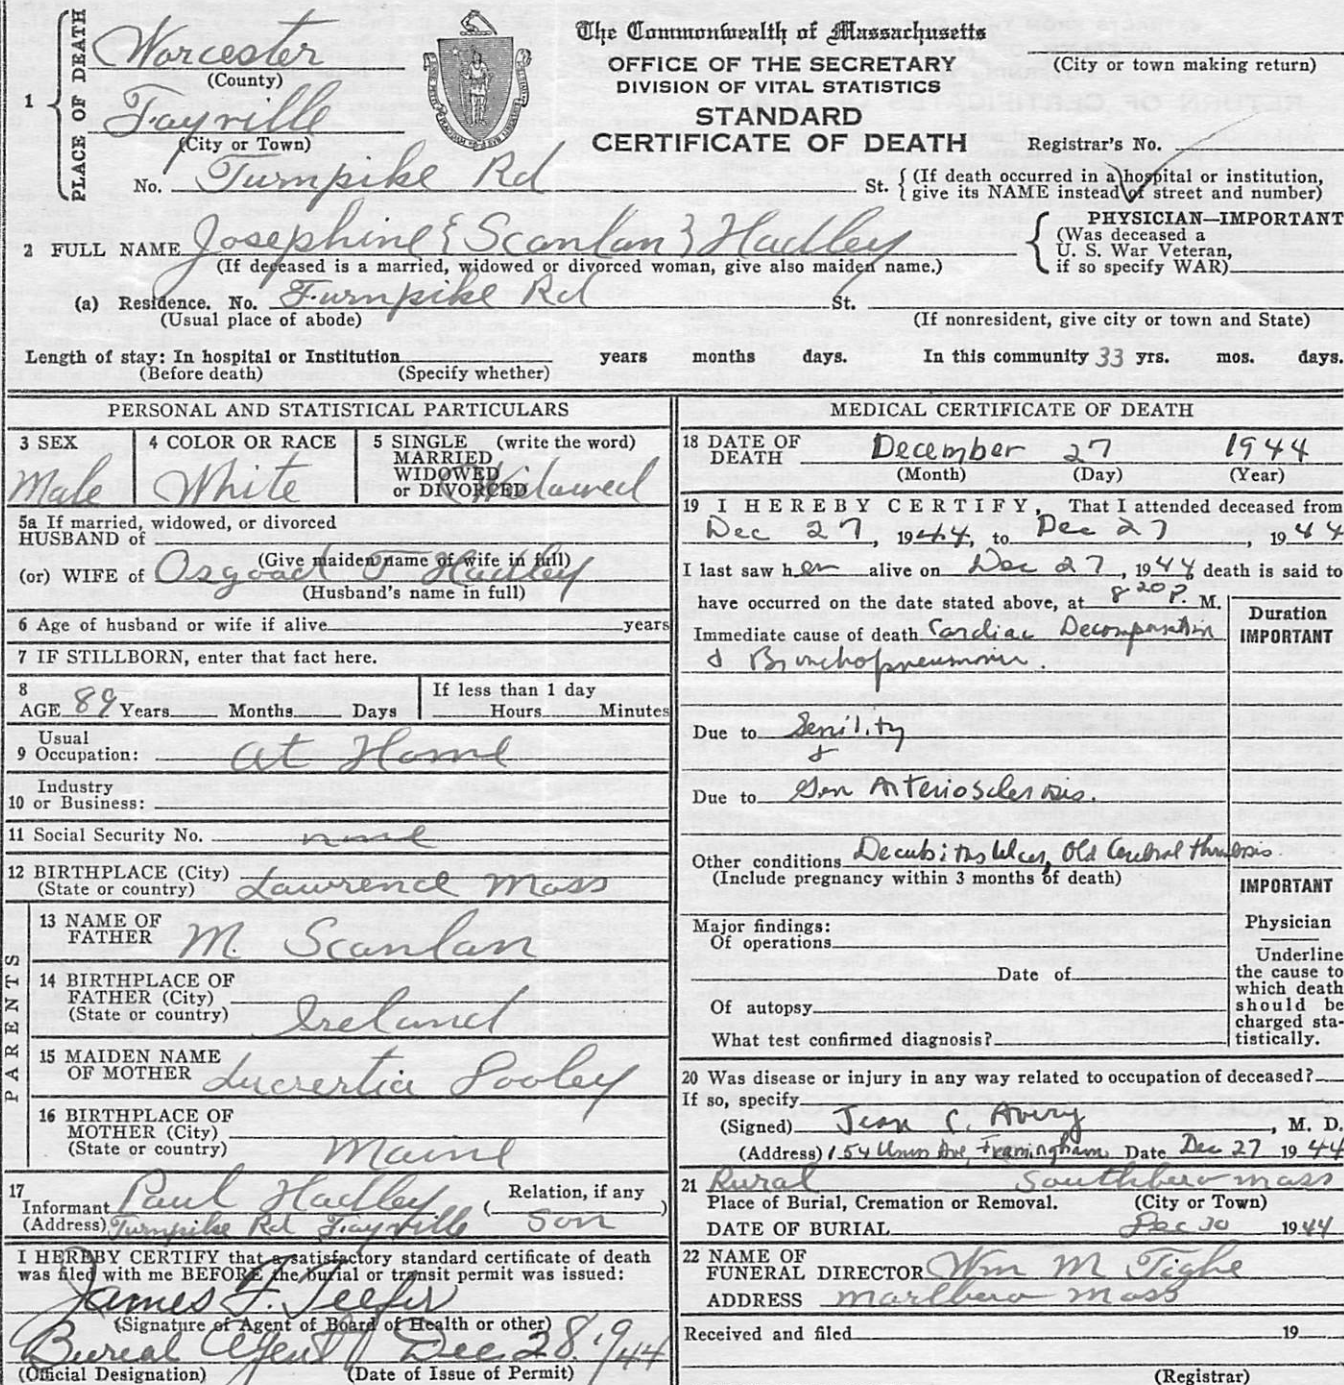 The Commonwealth of Massachusetts
OFFICE OF THE SECRETARY
DIVISION OF VITAL STATISTICS
STANDARD
CERTIFICATE OF DEATH
(City or town making return)
Registrar's No.
1 PLACE OF DEATH
Worcester
(County)
Fayville
(City or Town)
No. Turnpike Rd St. { (If death occurred in a hospital or institution, give its NAME instead of street and number)
2 FULL NAME Josephine {Scanlan} Hadley
(If deceased is a married, widowed or divorced woman, give also maiden name.)
PHYSICIAN—IMPORTANT
(Was deceased a
U. S. War Veteran,
if so specify WAR)
(a) Residence. No. Turnpike Rd St.
(Usual place of abode) (If nonresident, give city or town and State)
Length of stay: In hospital or Institution years months days. In this community 33 yrs. mos. days.
(Before death) (Specify whether)
PERSONAL AND STATISTICAL PARTICULARS
3 SEX
Male
4 COLOR OR RACE
White
5 SINGLE (write the word)
MARRIED
WIDOWED
or DIVORCED Widowed
5a If married, widowed, or divorced
HUSBAND of
(Give maiden name of wife in full)
(or) WIFE of Osgood F Hadley
(Husband's name in full)
6 Age of husband or wife if alive years
7 IF STILLBORN, enter that fact here.
8
AGE 89 Years Months Days
If less than 1 day
Hours Minutes
9 Usual Occupation: at Home
10 Industry or Business:
11 Social Security No. none
12 BIRTHPLACE (City)
(State or country) Lawrence Mass
PARENTS
13 NAME OF
FATHER M. Scanlan
14 BIRTHPLACE OF
FATHER (City)
(State or country) Ireland
15 MAIDEN NAME
OF MOTHER Lucrertia Pooley
16 BIRTHPLACE OF
MOTHER (City)
(State or country) Maine
17
Informant Paul Hadley ( Relation, if any
(Address) Turnpike Rd Fayville Son )
I HEREBY CERTIFY that a satisfactory standard certificate of death
was filed with me BEFORE the burial or transit permit was issued:
James F. Teefer
(Signature of Agent of Board of Health or other)
Burial Agent Dec. 28. 1944
(Official Designation) (Date of Issue of Permit)
MEDICAL CERTIFICATE OF DEATH
18 DATE OF
DEATH December 27 1944
(Month) (Day) (Year)
19 I HEREBY CERTIFY, That I attended deceased from
Dec 27, 1944, to Dec 27, 1944
I last saw her alive on Dec 27, 1944 death is said to
have occurred on the date stated above, at 8 20 P. M.
Duration
IMPORTANT
Immediate cause of death Cardiac Decompensation
& Bronchopneumonia.
Due to Senility
&
Due to Gen Arteriosclerosis.
Other conditions Decubitus Ulcer, Old Cerebral thrombosis
(Include pregnancy within 3 months of death)
IMPORTANT
Physician
Underline
the cause to
which death
should be
charged sta-
tistically.
Major findings:
Of operations
Date of
Of autopsy
What test confirmed diagnosis?
20 Was disease or injury in any way related to occupation of deceased?
If so, specify
(Signed) Jean C. Avery, M. D.
(Address) 154 Union Ave, Framingham Date Dec 27 1944
21 Rural Southboro Mass
Place of Burial, Cremation or Removal. (City or Town)
DATE OF BURIAL Dec 30 1944
22 NAME OF
FUNERAL DIRECTOR Wm M Tighe
ADDRESS Marlboro Mass
Received and filed 19
(Registrar)